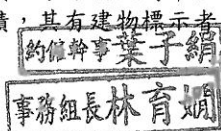 積，其有建物標示者
約僱幹事葉子絹
事務組長林育嫺